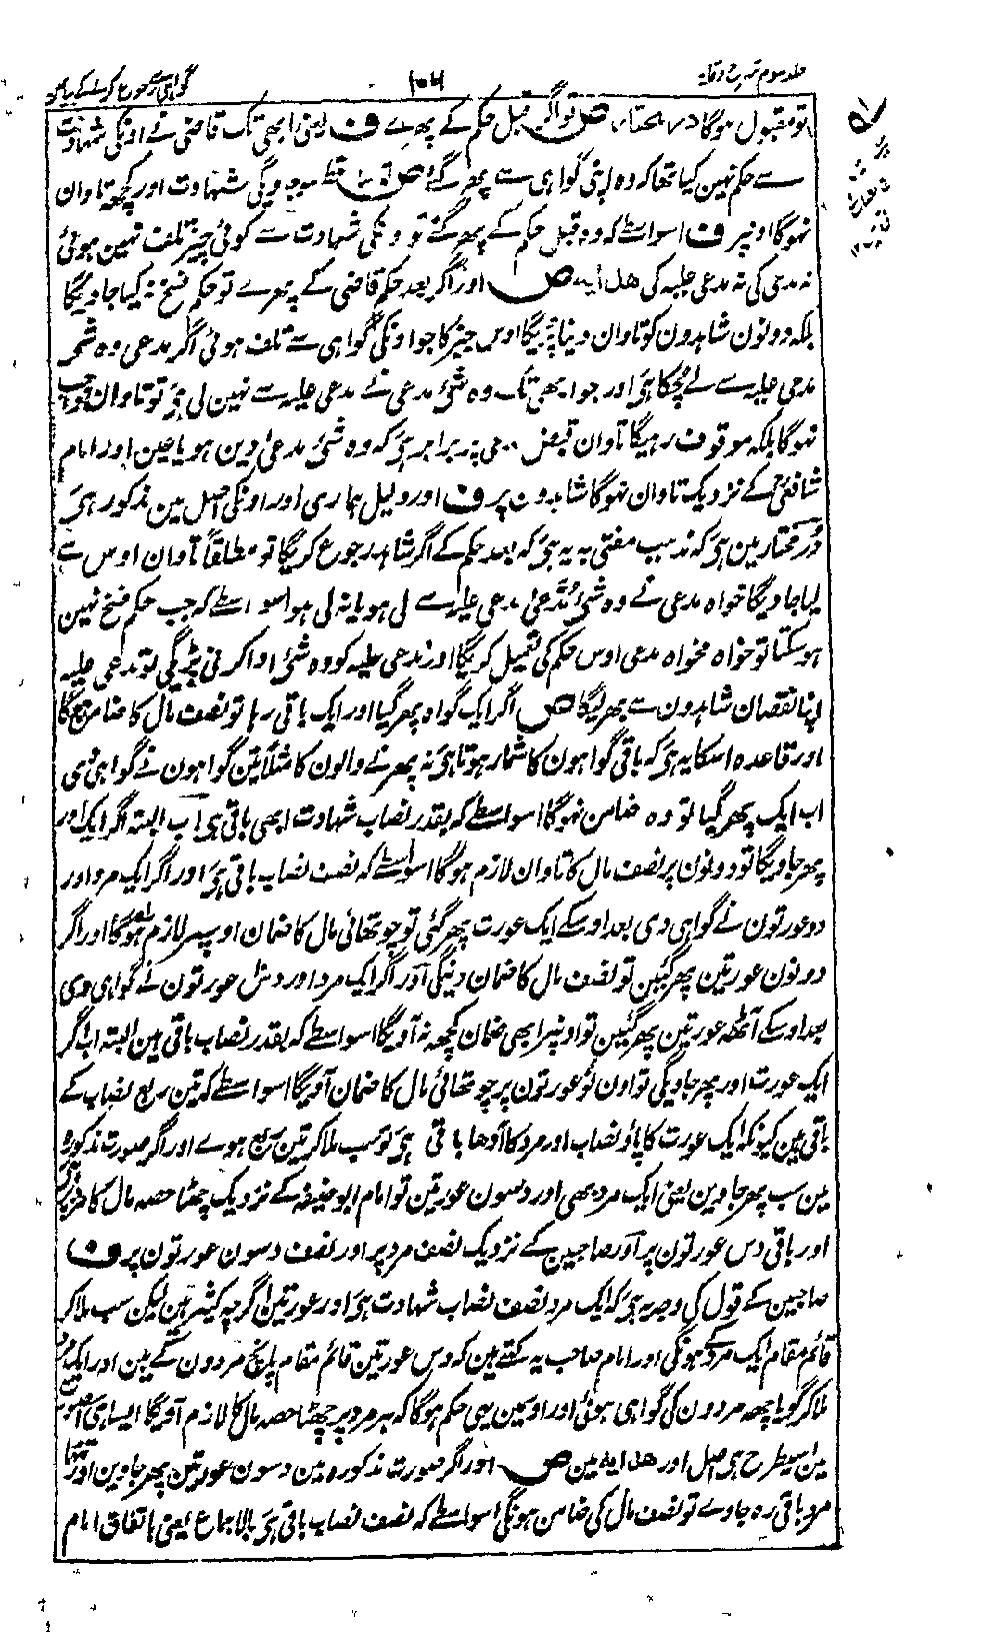 جلد سوم شرح وقایہ
گواہی سے رجوع کرنے کے بیان
تو مقبول ہوگا در مختار ص تو اگر قبل حکم کے پھرے ف یعنی ابھی تک قاضی نے اونکی شہادت
سے حکم نہین کیا تھا کہ وہ اپنی گواہی سے پھر گئے ص شہادت اور کچھ تاوان
نہوگا اونپر ف اسواسطے کہ وہ قبل حکم کے پھر گئے تو ونکی شہادت سے کوئی چیز تلف نہین ہوئی
نہ مدعی کی نہ مدعی علیہ کی ھدایہ ص اور اگر بعد حکم قاضی کے پھرے تو حکم فسخ نہ کیا جاویگا
بلکہ دونون شاہدون کو تاوان دینا پڑیگا اوس چیز کا جو اونکی گواہی سے تلف ہوئی اگر مدعی وہ شی
مدعی علیہ سے لے چکا ہی اور جو ابھی تک وہ شی مدعی نے مدعی علیہ سے نہین لی ہی تو تاوان واجب
نہوگا بلکہ موقوف رہیگا تاوان قبض مدعی پر برابر ہی کہ وہ شی مدعیٰ دین ہو یا عین اور امام
شافعی کے نزدیک تاوان نہوگا شاہدون پر ف اور دلیل ہماری اور اونکی اصل مین مذکور ہی
در مختار مین ہی کہ مذہب مفتی بہ یہ ہی کہ بعد حکم کے اگر شاہد رجوع کریگا تو مطلقاً تاوان اوس سے
لیا جاویگا خواہ مدعی نے وہ شی مدعیٰ مدعی علیہ سے لی ہو یا نہ لی ہو اسواسطے کہ جب حکم فسخ نہین
ہو سکتا تو خواہ مخواہ مدعی اوس حکم کی تعمیل کریگا اور مدعی علیہ کو وہ شی ادا کرنی پڑیگی تو مدعی علیہ
اپنا نقصان شاہدون سے بھر لیگا ص اگر ایک گواہ پھر گیا اور ایک باقی رہا تو نصف مال کا ضامن ہوگا
اور قاعدہ اسکا یہ ہی کہ باقی گواہون کا شمار ہوتا ہی نہ پھرنے والون کا مثلاً تین گواہون نے گواہی دی
اب ایک پھر گیا تو وہ ضامن نہوگا اسواسطے کہ بقدر نصاب شہادت ابھی باقی ہی اب البتہ اگر ایک اور
پھر جاویگا تو دونون پر نصف مال کا تاوان لازم ہوگا اسواسطے کہ نصف نصاب باقی ہی اور اگر ایک مرد اور
دو عورتون نے گواہی دی بعد اوسکے ایک عورت پھر گئی تو چوتھائی مال کا ضمان اوسپر لازم ہوگا اور اگر
دونون عورتین پھر گئین تو نصف مال کا ضمان دینگی اور اگر ایک مرد اور دس عورتون نے گواہی دی
بعد اوسکے آٹھ عورتین پھر گئین تو اونپر ابھی ضمان کچھ نہ آویگا اسواسطے کہ بقدر نصاب باقی ہین البتہ اب اگر
ایک عورت اور پھر جاویگی تو اون نو عورتون پر چوتھائی مال کا ضمان آویگا اسواسطے کہ تین ربع نصاب کے
باقی ہین کیونکہ ایک عورت کا پاؤ نصاب اور مرد کا آدھا باقی ہی تو سب ملاکر تین ربع ہوے اور اگر صورت مذکورہ
مین سب پھر جاوین یعنی ایک مرد بھی اور دسون عورتین تو امام ابو حنیفہ کے نزدیک چھٹا حصہ مال کا مرد پر
اور باقی دس عورتون پر اور صاحبین کے نزدیک نصف مرد پر اور نصف دسون عورتون پر ف
صاحبین کے قول کی وجہ یہ ہی کہ ایک مرد نصف نصاب شہادت ہی اور عورتین اگرچہ کثیر ہین لیکن سب ملاکر
قائم مقام ایک مرد کے ہونگی اور امام صاحب یہ کہتے ہین کہ دس عورتین قائم مقام پانچ مردون کے ہین اور ایک مرد
ملاکر گویا چھہ مردون کی گواہی ہوئی اور اوسمین یہی حکم ہوگا کہ ہر مرد پر چھٹا حصہ مال کا لازم آویگا ایسا ہی اس صورت
مین اسیطرح ہی اصل اور ھدایہ مین ص اور اگر صورت مذکورہ مین دسون عورتین پھر جاوین اور تنہا
مرد باقی رہ جاوے تو نصف مال کی ضامن ہونگی اسواسطے کہ نصف نصاب باقی ہی بالاجماع یعنی باتفاق امام